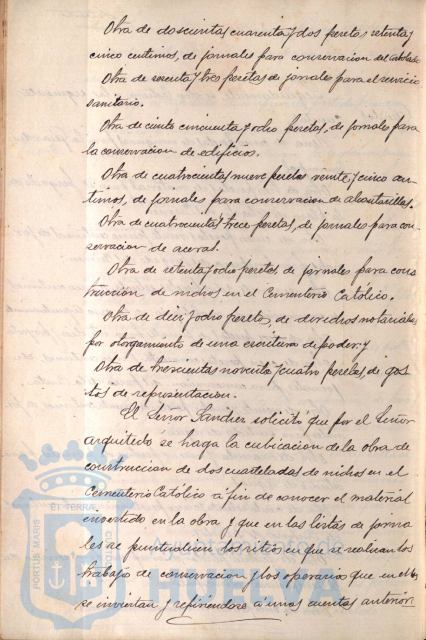 Otra de doscientas cuarenta y dos pesetas setenta y
cinco centimos, de jornales para conservacion del arbolado.
Otra de sesenta y tres pesetas de jornales para el servicio
sanitario.
Otra de ciento cincuenta y ocho pesetas, de jornales para
la conservacion de edificios.
Otra de cuatrocientas nueve pesetas veinte y cinco cen-
timos, de jornales para conservacion de alcantarillas.
Otra de cuatrocientas trece pesetas, de jornales para con-
servacion de aceras.
Otra de setenta y ocho pesetas, de jornales para cons-
truccion de nichos en el Cementerio Católico.
Otra de diez y ocho pesetas, de derechos notariales
por otorgamiento de una escritura de poder: y
Otra de trescientas noventa y cuatro pesetas, de gas-
tos de representacion.
El Señor Sanchez solicitó que por el Señor
arquitecto se haga la cubicacion de la obra de
construccion de dos cuarteladas de nichos en el
Cementerio Católico á fin de conocer el material
invertido en la obra y que en las listas de jorna-
les se puntualicen los sitios en que se realizan los
trabajos de conservacion y los operarios que en ellos
se inviertan y refiriendose a unas cuentas anterior-
PORTUS MARIS
ET TERRAE
HUELVA